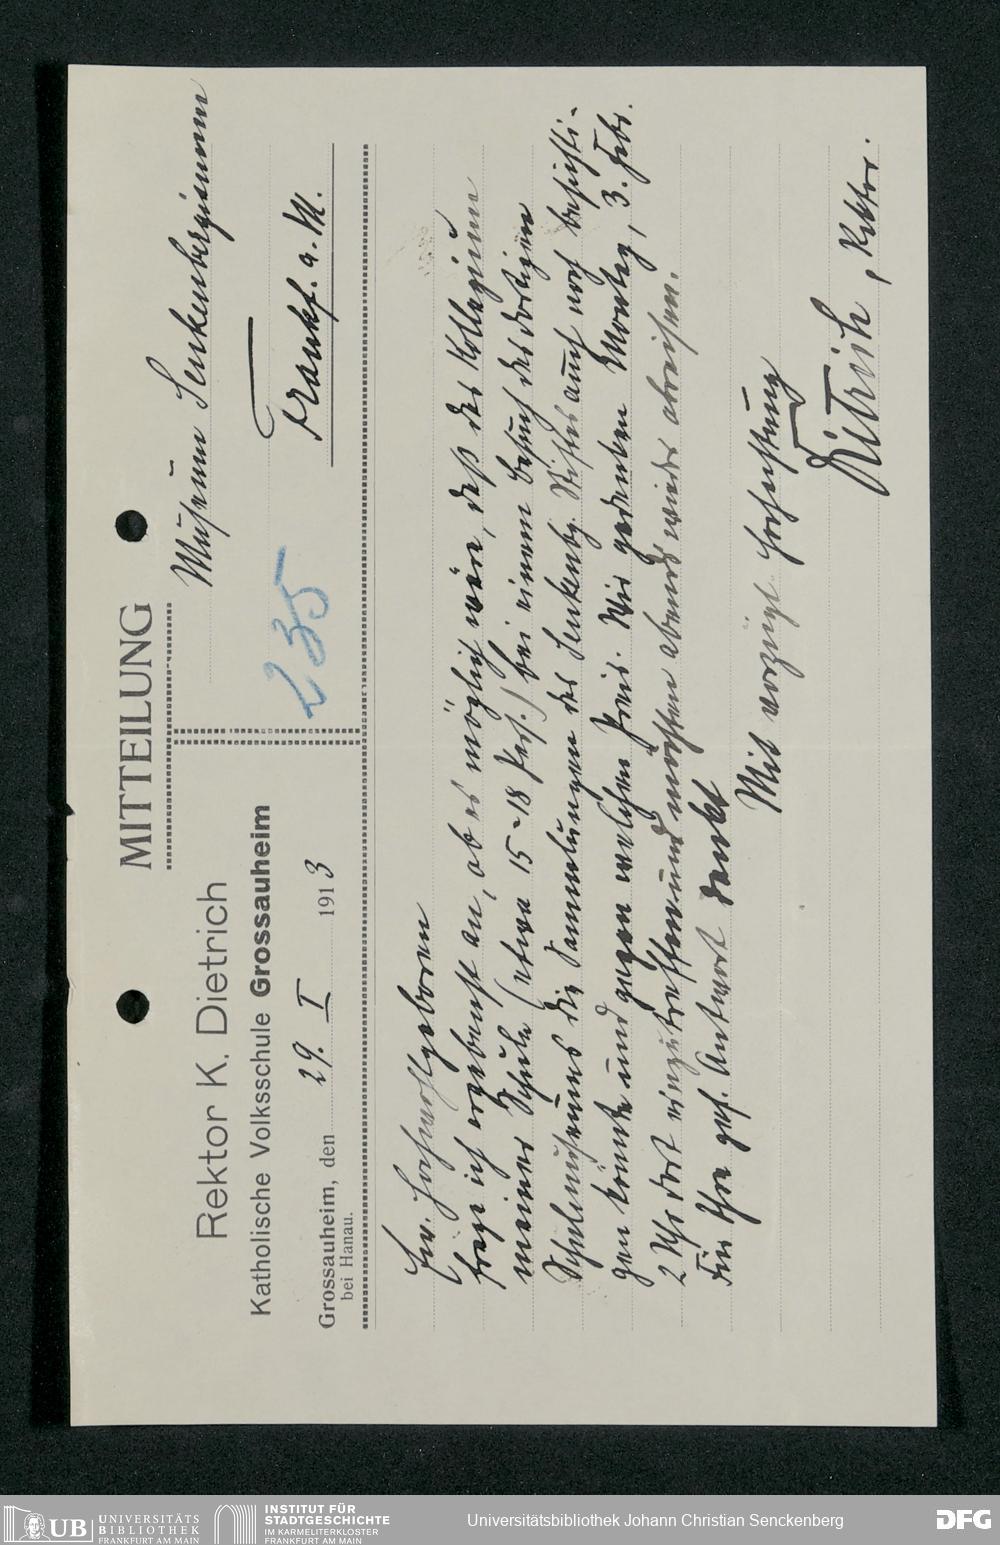 MITTEILUNG
Rektor K. Dietrich
Katholische Volksschule Grossauheim
Grossauheim, den 29. I 1913
bei Hanau.
Museum Senkenbergianum
Frankf. a. M.
235
Ew. Hochwohlgeboren
frage ich ergebenst an, ob es möglich wäre, daß das Kollegium
meiner Schule (etwa 15-18 Pers.) bei einem Besuch des dortigen
Schulmuseums die Sammlungen des Senkenbg. Stiftes auch noch besichti-
gen könnte und gegen welchen Preis. Wir gedenken Montag, 3. Febr.
2 Uhr dort einzutreffen und möchten abends wieder abreisen.
Für Ihre gef. Antwort dankt
Mit vorzügl. Hochachtung
Dietrich, Rektor.
UB UNIVERSITÄTS
BIBLIOTHEK
FRANKFURT AM MAIN
INSTITUT FÜR
STADTGESCHICHTE
IM KARMELITERKLOSTER
FRANKFURT AM MAIN
Universitätsbibliothek Johann Christian Senckenberg
DFG